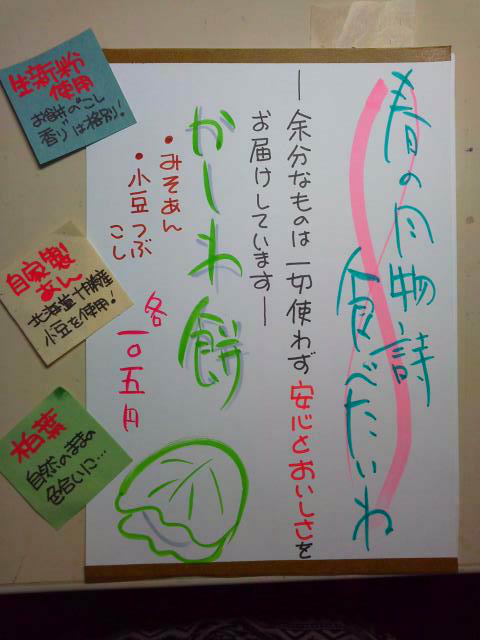 春の風物詩
食べたいわ
―余分なものは一切使わず安心とおいしさを
お届けしています―
かしわ餅
・みそあん
・小豆つぶ
こし
各一〇五円
生新粉
使用
お餅のこし
香りは格別!
自家製
あん
北海道十勝産
小豆を使用!
柏葉
自然のままの
色合いに…